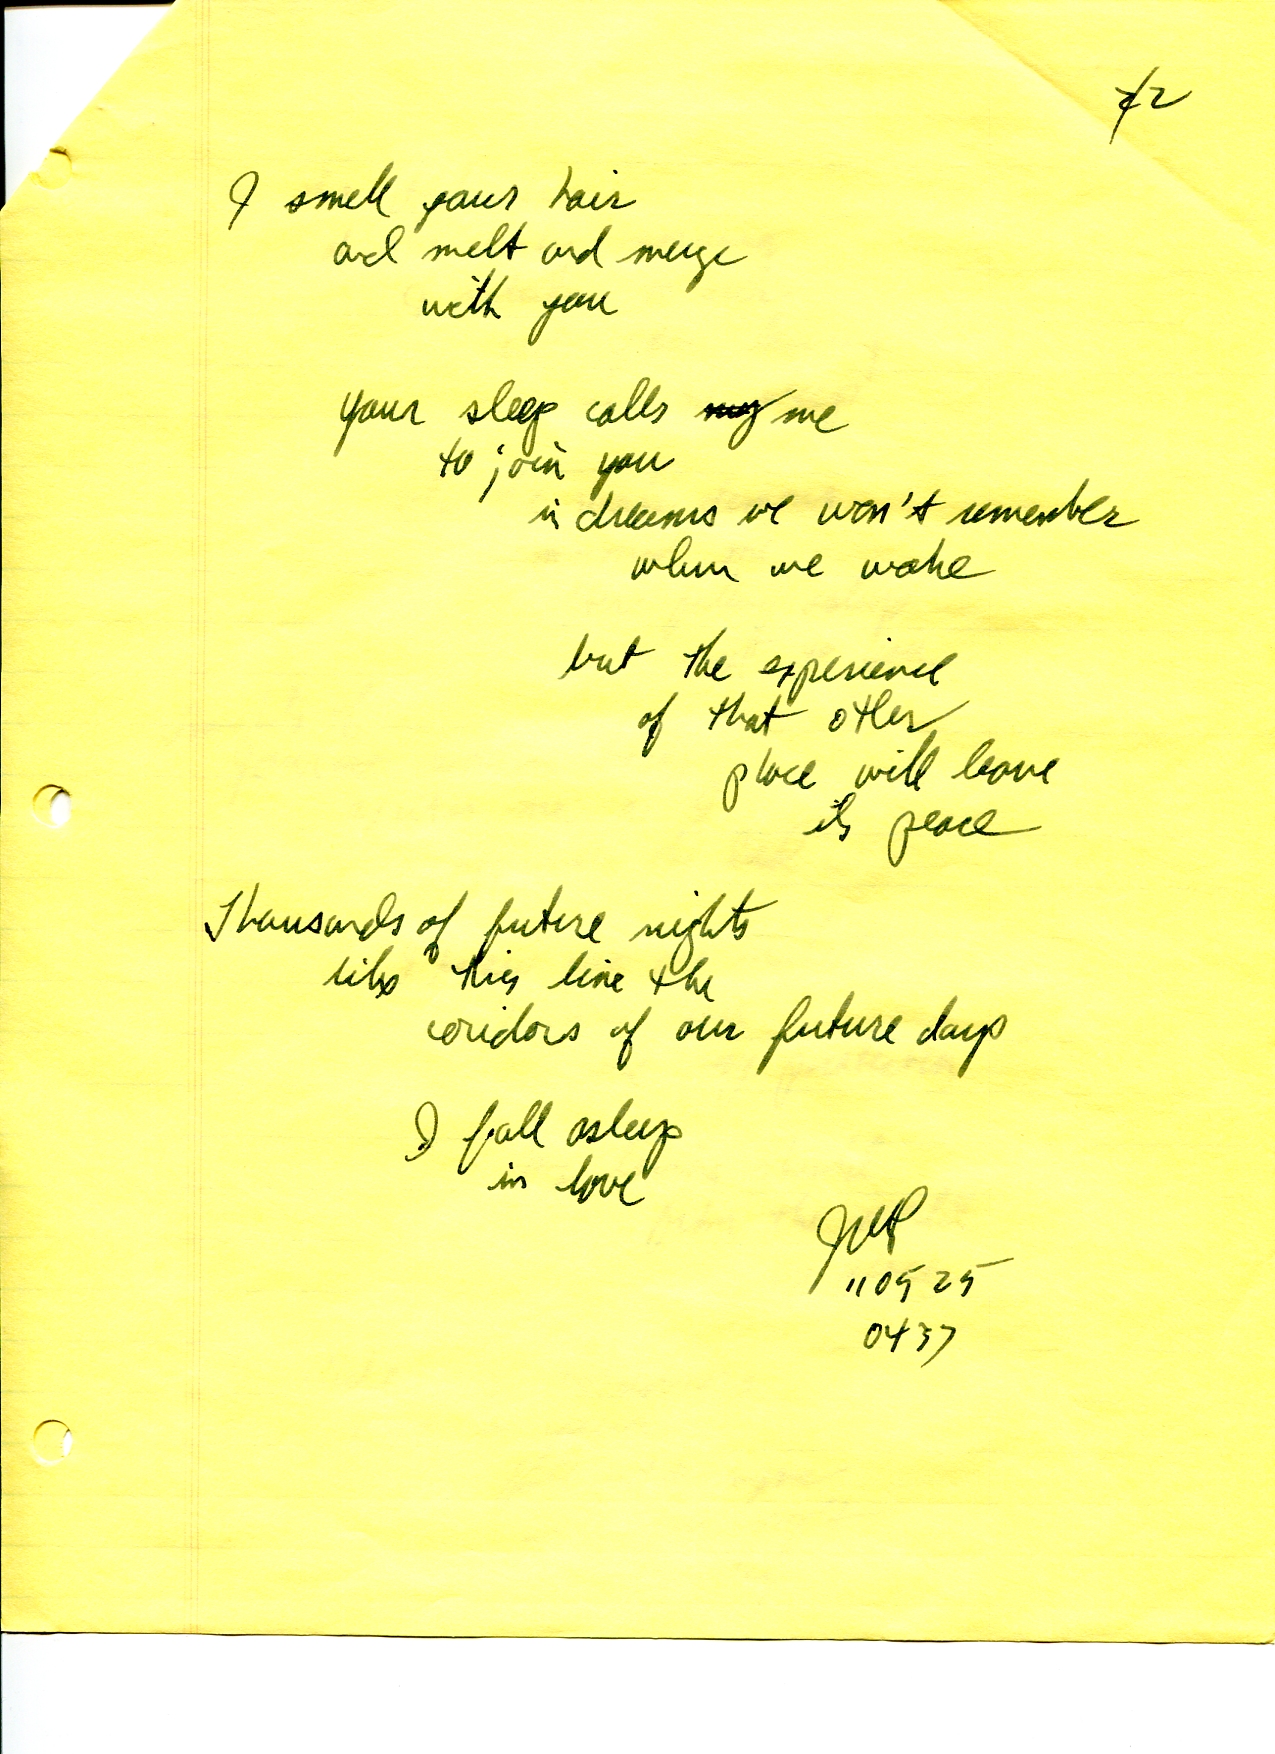 I smell your hair
and melt and merge
with you
your sleep calls my me
to join you
in dreams we won't remember
when we wake
but the experience
of that other
place will leave
its peace
Thousands of future nights
like this line the
coridors of our future days
I fall asleep
in love
110525
0437